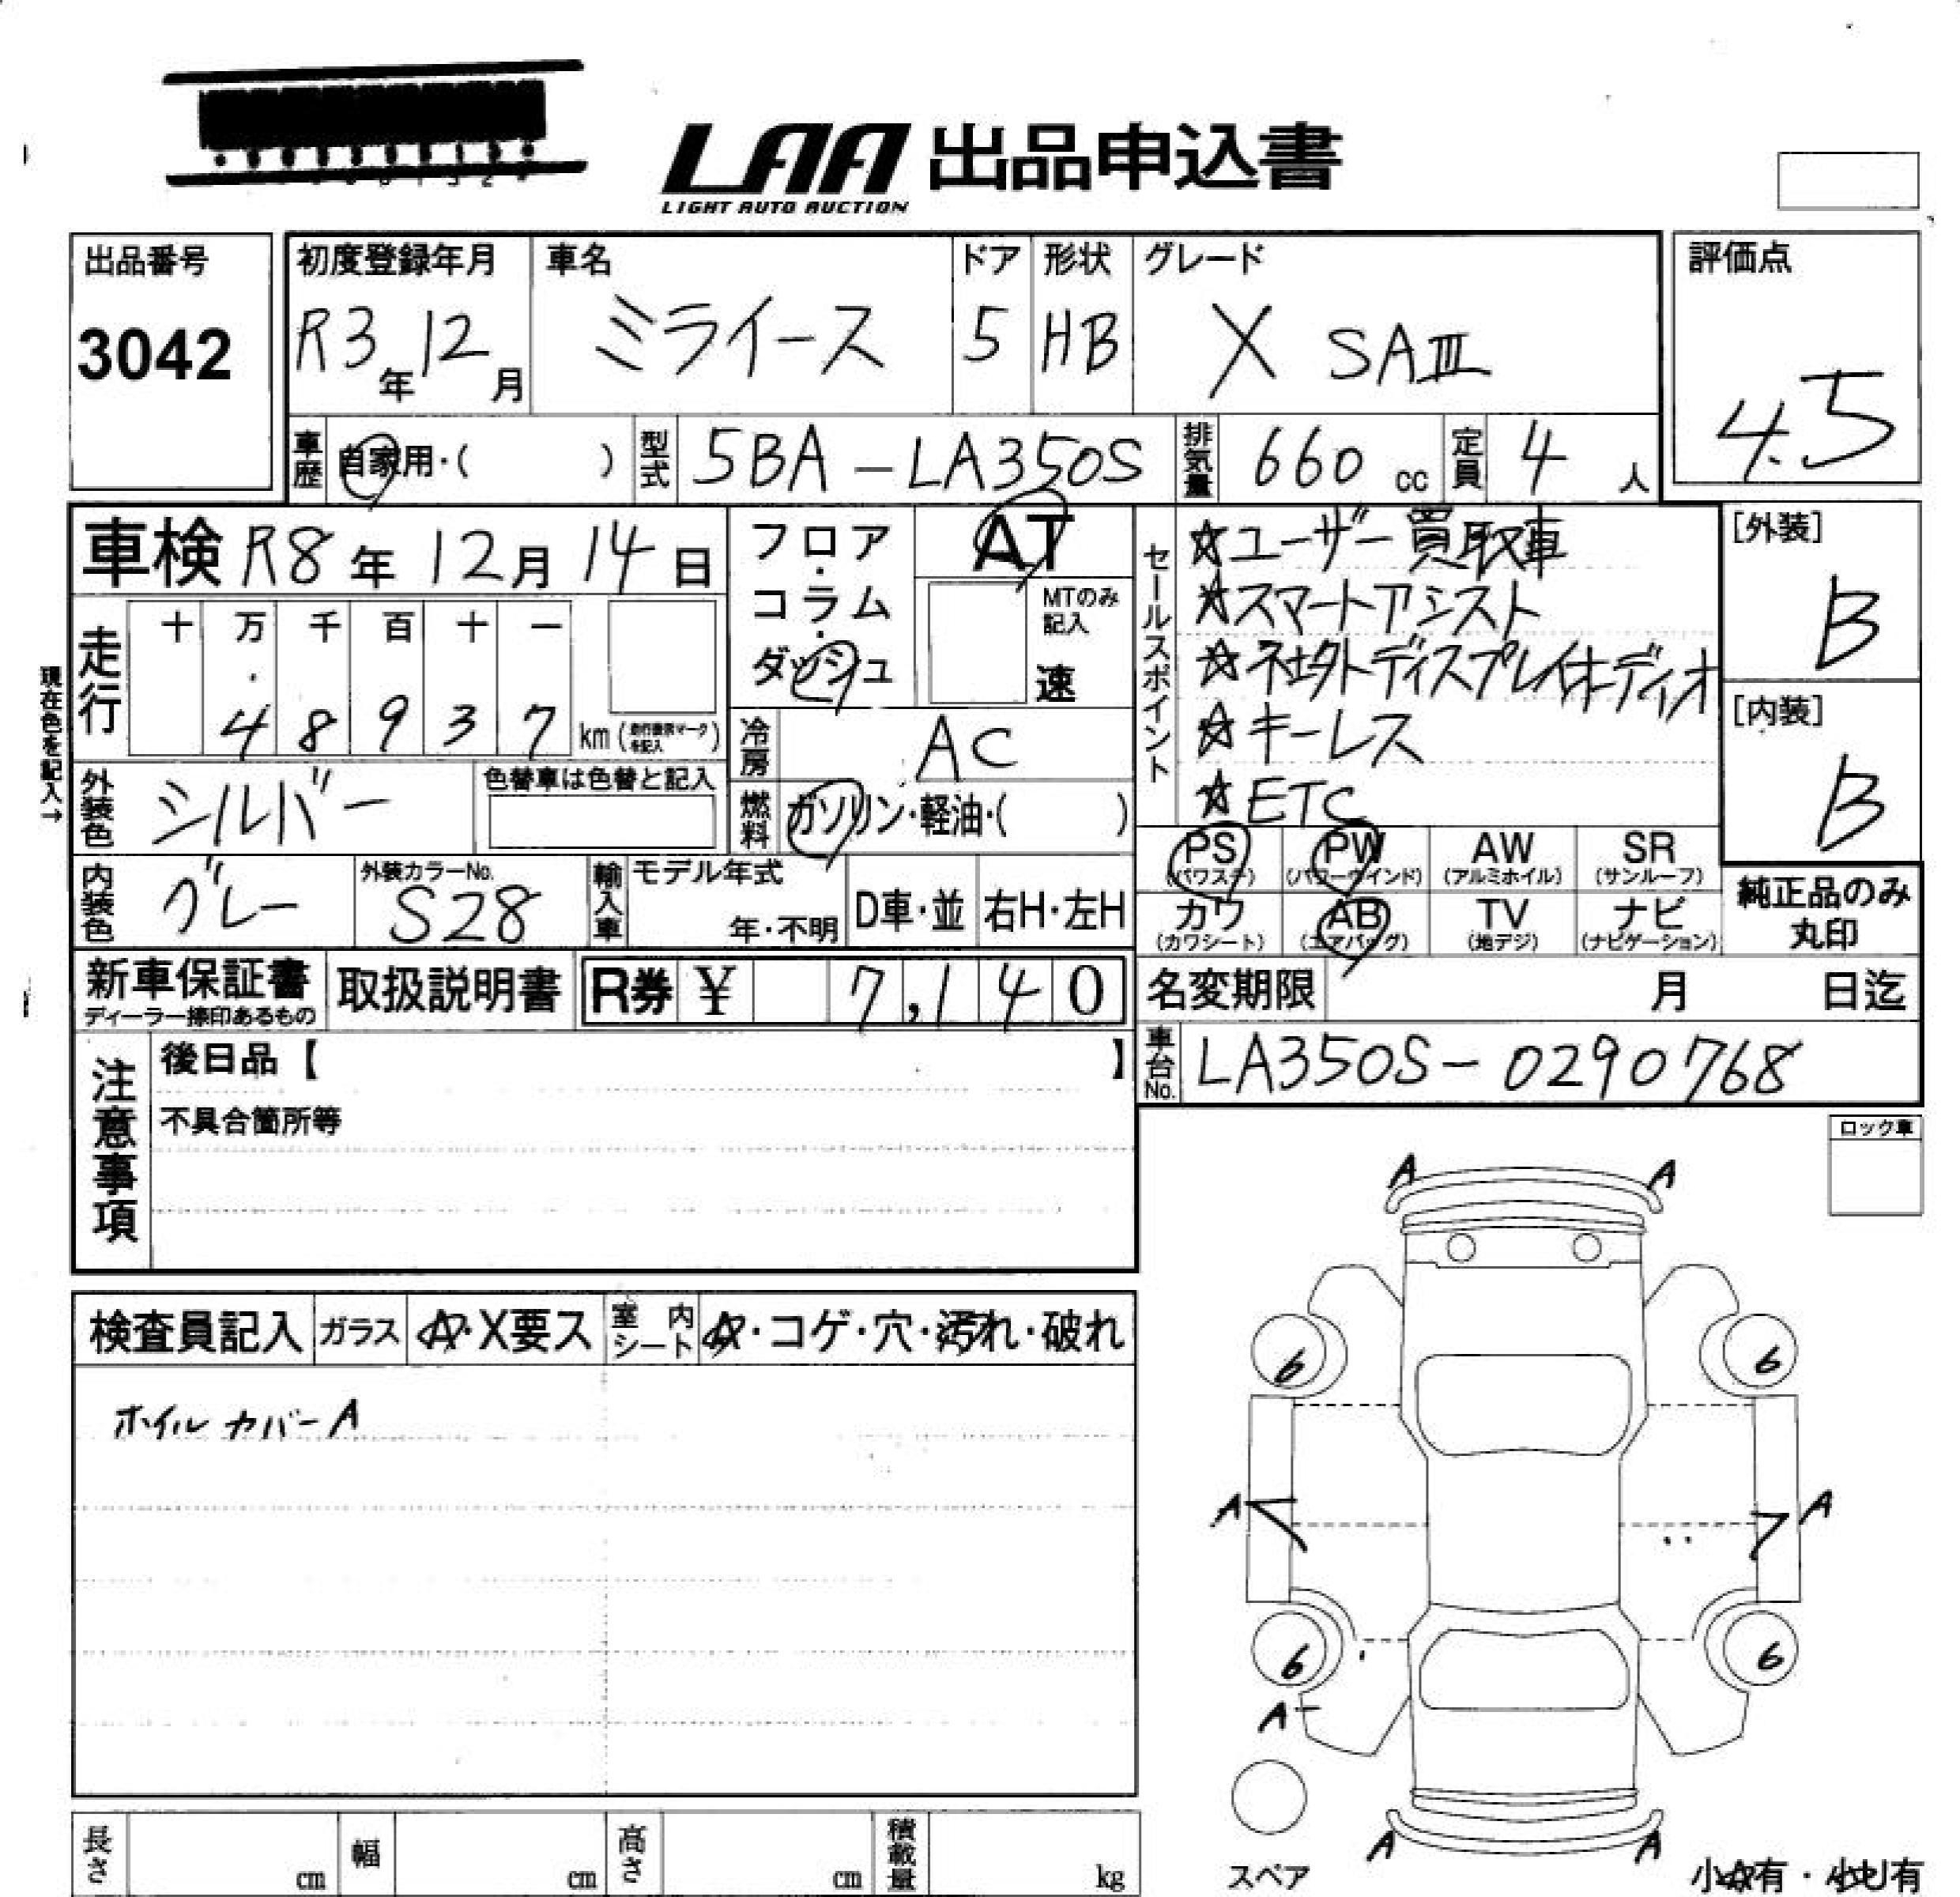 LAA 出品申込書
LIGHT AUTO AUCTION
出品番号
3042
初度登録年月
R3年12月
車名
ミライース
ドア
5
形状
HB
グレード
X SAⅢ
評価点
4.5
車歴
自家用・( )
型式
5BA-LA350S
排気量
660 cc
定員
4 人
車検 R8年12月14日
フロア・コラム・ダッシュ
AT
MTのみ記入
速
セールスポイント
☆ユーザー買取車
☆スマートアシスト
☆社外ディスプレイオーディオ
☆キーレス
☆ETC
[外装]
B
[内装]
B
現在色を記入→
走行
十 万 千 百 十 一
4 8 9 3 7 km
冷房
AC
外装色
シルバー
色替車は色替と記入
燃料
ガソリン・軽油・( )
内装色
グレー
外装カラーNo.
S28
輸入車
モデル年式
年・不明
D車・並
右H・左H
PS (パワステ)
PW (パワーウインド)
AW (アルミホイル)
SR (サンルーフ)
カワ (カワシート)
AB (エアバッグ)
TV (地デジ)
ナビ (ナビゲーション)
純正品のみ丸印
新車保証書
ディーラー捺印あるもの
取扱説明書
R券 ¥ 7,140
名変期限 月 日迄
車台No.
LA350S-0290768
注意事項
後日品【 】
不具合箇所等
ロック車
検査員記入
ガラス
A・X要ス
室内シート
A・コゲ・穴・汚れ・破れ
ホイルカバーA
A A
6 6
A A
6 6
A
A A
スペア
長さ cm
幅 cm
高さ cm
積載量 kg